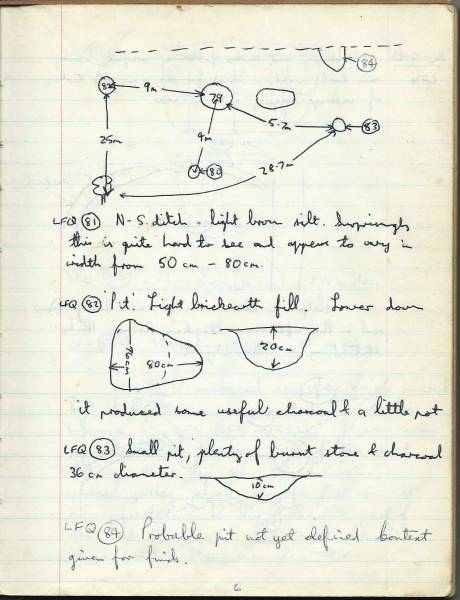 84
82 9m 79
5.7m 83
25m 9m
80 28.7m
LFQ 81 N-S ditch - light brown silt. Surprisingly
this is quite hard to see and appears to vary in
width from 50 cm - 80cm.
LFQ 82 'Pit'. Light brickearth fill. Lower down
76cm 80cm 20cm
it produced some useful charcoal & a little pot
LFQ 83 Small pit, plenty of burnt stone & charcoal
36 cm diameter. 10cm
LFQ 84 Probable pit not yet defined Context
given for finds.
6